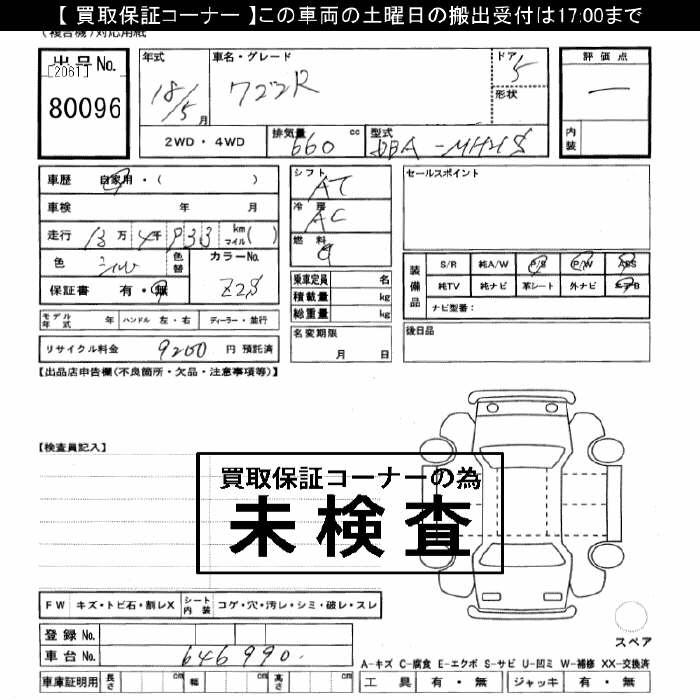 【 買取保証コーナー 】この車両の土曜日の搬出受付は17:00まで
(複合機)対応用紙
出品No.
[2061]
80096
年式
18/5月
車名・グレード
ワゴンR
ドア
5
形状
2WD・4WD
排気量 660 cc
型式 DBA-MH21S
評価点
—
内装
車歴 自家用・( )
車検 年 月
走行 13万 4千 933 km マイル( )
色
色替
カラーNo.
Z2S
保証書 有・無
モデル年式 年 ハンドル 左・右 ディーラー・並行
リサイクル料金 9200 円 預託済
シフト AT
冷房 AC
燃料
乗車定員 名
積載量 kg
総重量 kg
名変期限
月 日
セールスポイント
装備品
S/R 純A/W P/S P/W ABS
純TV 純ナビ 革シート 外ナビ エアB
ナビ型番:
後日品
【出品店申告欄(不良箇所・欠品・注意事項等)】
【検査員記入】
買取保証コーナーの為
未検査
FW キズ・トビ石・割レX シート内装 コゲ・穴・汚レ・シミ・破レ・スレ
登録No.
車台No. 646990
車庫証明用 長さ cm 幅 cm 高さ cm
スペア
A-キズ C-腐食 E-エクボ S-サビ U-凹ミ W-補修 XX-交換済
工具 有・無 ジャッキ 有・無